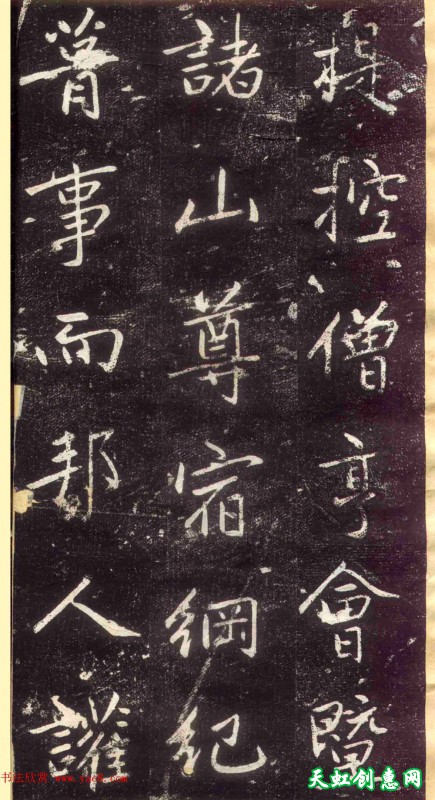 提控僧亨會暨
諸山尊宿綱紀
胥事而邦人讙
书法欣赏 www.yac8.com
天虹创意网